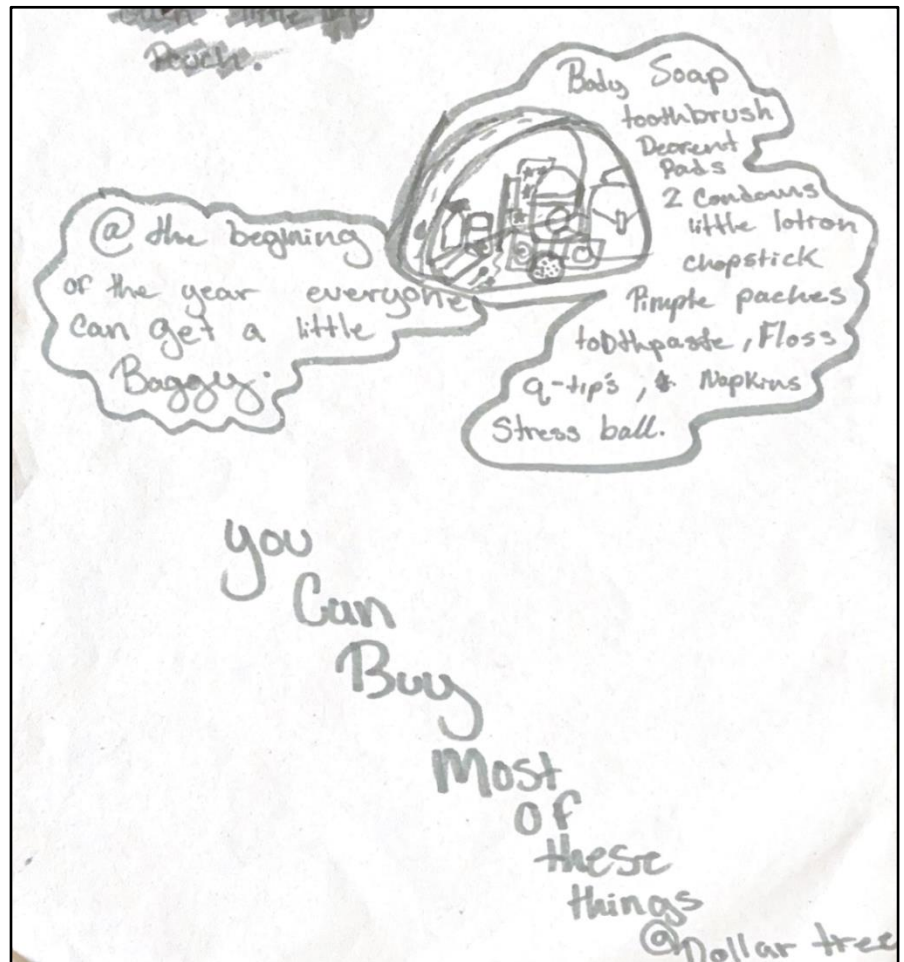 own little
Pouch.
@ the begining
of the year everyone
can get a little
Baggy.
Body Soap
toothbrush
Deorent
Pads
2 Condoms
little lotion
chopstick
Pimple paches
toothpaste, Floss
q-tip's, & Napkins
Stress ball.
you
Can
Buy
Most
of
these
things
@Dollar tree